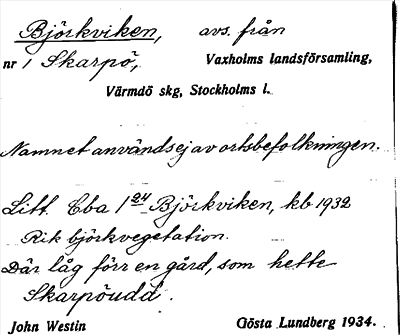 Björkviken, avs. från
nr 1 Skarpö, Vaxholms landsförsamling,
Värmdö skg, Stockholms l.
Namnet användsej av ortsbefolkningen.
Litt. Cba 1 24 Björkviken, kb 1932
Rik björkvegetation.
Där låg förr en gård, som hette
Skarpöudd.
John Westin Gösta Lundberg 1934.